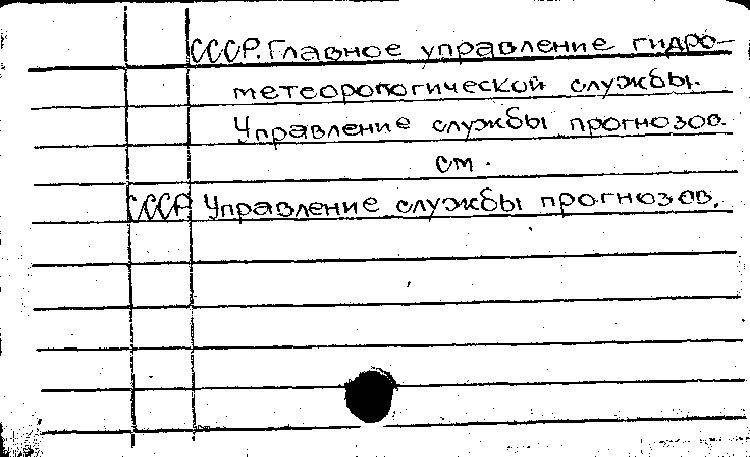 СССР. Главное управление гидро-
метеорологической службы.
Управление службы прогнозов.
см.
СССР. Управление службы прогнозов.